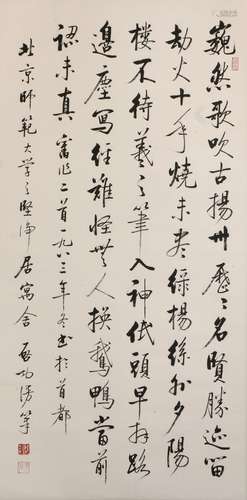 巍然歌吹古揚州歷々名賢勝迹留
劫火十年燒未盡綠楊絲外夕陽
樓不待羲之筆入神低頭早拜路
邊塵寫經難怪無人換鵝鴨當前
認未真 舊作二首一九八三年冬書於首都
北京師範大學之堅淨居寓舍 啟功